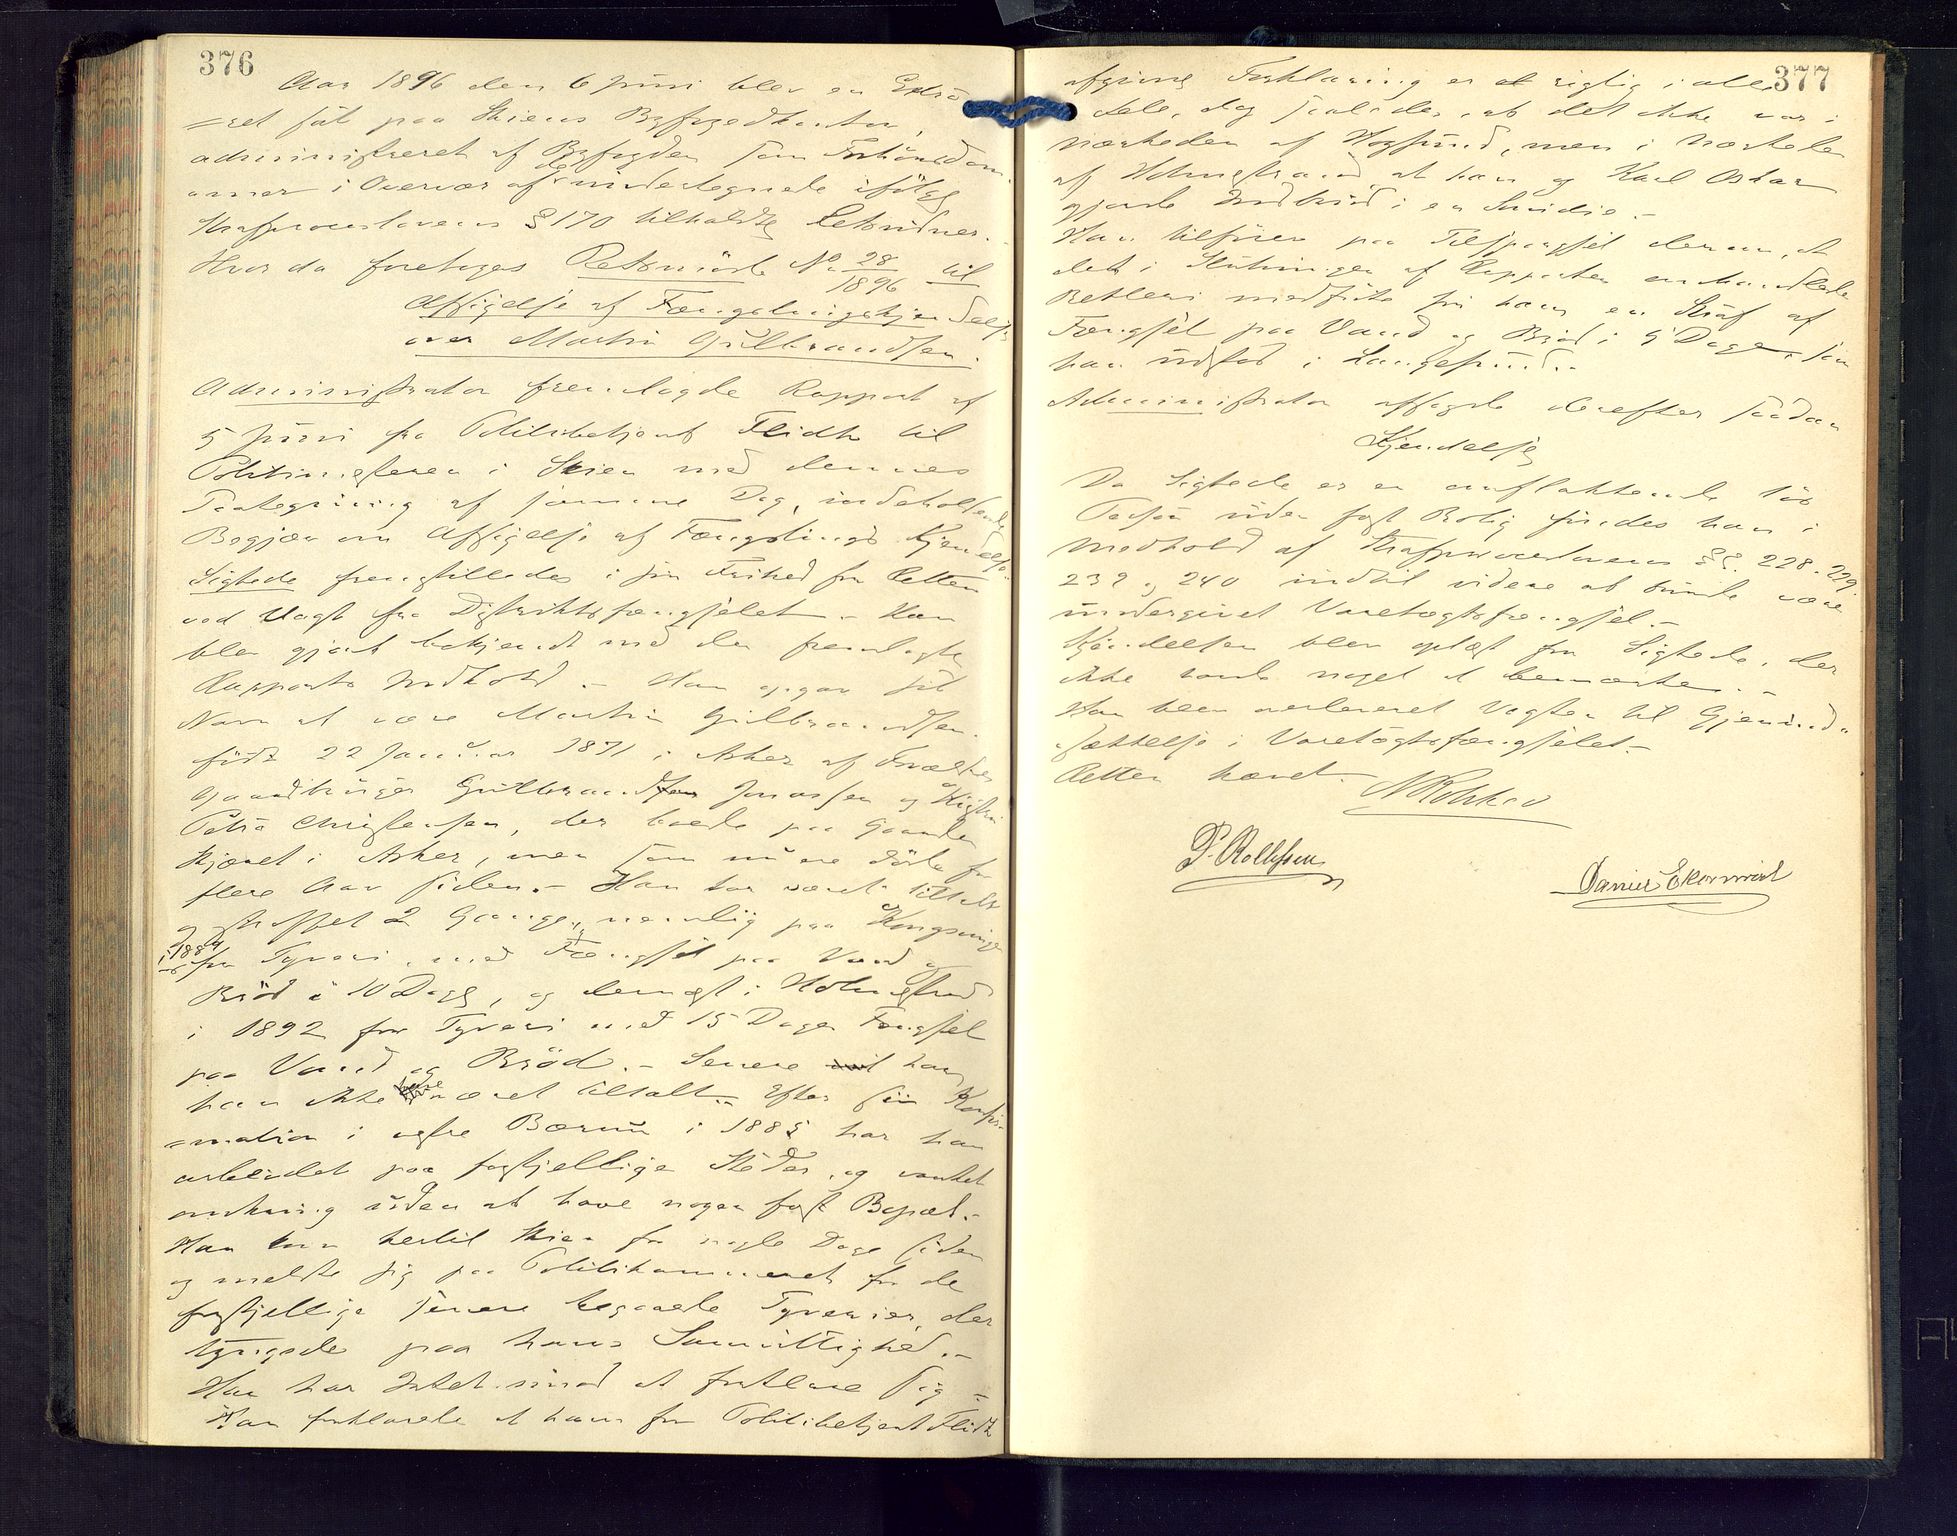 376
Aar 1896 den 6 Juni blev en Extra
=ret sat paa Skiens Byfogedkontor,
administreret af Byfogden som Forhørsdom-
mer i Overvær af de undertegnede ifølge
Straffprocesslovens § 170 tilkaldte Retsvidner. -
Hvor da foretoges Retsmøde No 28/1896 til
Afsigelse af Fængslingskjendelse
over Martin Gulbrandsen.
Administrator fremlagde Rapport af
5 Juni fra Politibetjent Flidh til
Politimesteren i Skien med dennes
Paategning af samme Dag, indeholdende
Begjær om Afsigelse af Fængslings Kjendelse.
Sigtede fremstilledes i sin Frihed for Retten
ved Vagt fra Distriktsfængslet. - Han
blev gjort bekjendt med den fremlagte
Rapports Indhold. - Han opgav sit
Navn at være Martin Gulbrandsen.
født 22 Januar 1871 i Asker af Forældre
Gaardbruger Gulbrand Jonassen og Kistine
Petra Christensen, der boede paa Gaarden
Skjævet i Asker, men som nu ere døde for
flere Aar siden. - Han har været tiltalt
og straffet 2 Gange, nemlig paa Kongsvinger
i 1889 for Tyveri, med Fængsel paa Vand og
Brød i 10 Dage, og dernæst i Holmestrand
i 1892 for Tyveri med 15 Dages Fængsel
paa Vand og Brød. - Senere har
han ikke været tiltalt. - Efter sin Konfir-
=mation i vestre Bærum i 1885 har han
arbeidet paa forskjellige Steder, og vanket
omkring uden at have nogen fast Bopæl. -
Han kom hertil Skien for nogle Dage siden
og meldte sig paa Politikammeret for de
forskjellige senere begaaede Tyverier, der
tyngede paa hans Samvittighed. -
Han har Intet imod at forklare sig -
Han forklarede at hans for Politibetjent Flidh
377
afgivne Forklaring er rigtig i alle
Dele, dog saaledes, at det ikke var i
Nærheden af Hogsund, men i Nærheden
af Holmestrand at han og Karl Oskar
gjorde Indbrud i en Smidie. -
Han tilføier paa Tilspørgsel derom, at
det i Slutningen af Rapporten omhandlede
Betleri medførte for ham en Straf af
Fængsel paa Vand og Brød i 5 Dage, som
han udstod i Langesund. -
Administrator afsagde derefter saadan
Kjendelse
Da Sigtede er en omflakkende løs
Person uden fast Bolig findes han i
Medhold af Strafprocesslovens §§. 228. 229,
239 og 240 indtil videre at burde være
undergivet Varetægtsfængsel. -
Kjendelsen blev oplæst for Sigtede, der
ikke havde noget at bemærke. -
Han blev overleveret Vagten til Gjenind-
sættelse i Varetægtsfængslet. -
Retten hævet. -
P. Rollefsen
Daniel Ekornrød